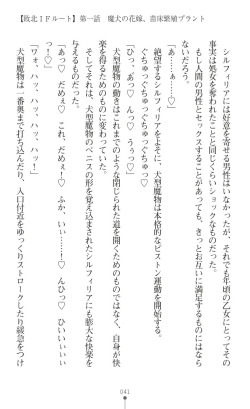 シルフィリアには好意を寄せる男性はいなかったが、それでも年頃の乙女にとって
事実は処女を奪われたことと同じくらいショックなものだった。
もし人間の男性とセックスすることがあっても、きっとお互いに満足するものではな
ないだろう。
ぐちゅっぐちゅっぐちゅっ♡
絶望するシルフィリアをよそに、犬型魔物は本格的なピストン運動を開始する。
犬型魔物の動きはこれまでのような閉じられた道を開くためのものではなく、自身が快
楽を得るためのものに変わっている。
そしてそれは、犬型魔物のペニスの形を覚え込まされたシルフィリアにも膨大な快楽を
与えるものだった。
「あっ♡ だめぇ♡ これ、だめぇ!♡ ふか、いぃ……!♡ ひいいぃぃっ♡
あっ♡ あっ♡ あっ♡ んっ♡ んひっ♡」
「ワォ、ハッ、ハッ、ハッ、ハッ!」
犬型魔物は一番奥まで打ち込んだり、入口付近をゆっくりストロークしたり緩急をつけ
【敗北IFルート】第一話 魔犬の花嫁、苗床繁殖プラント
041